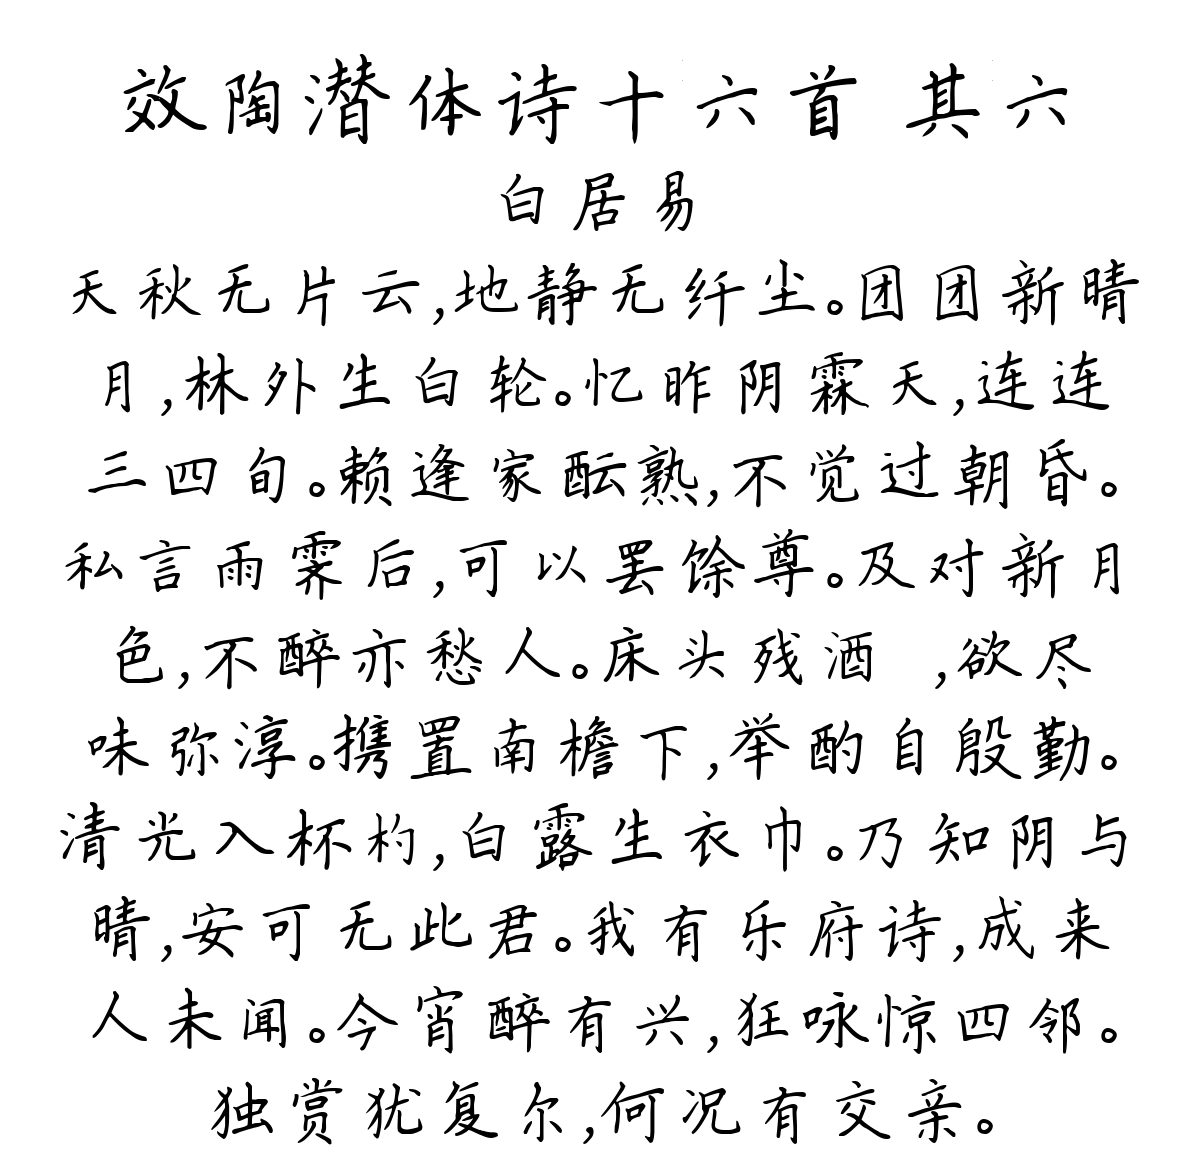 效陶潜体诗十六首 其六
白居易
天秋无片云,地静无纤尘。团团新晴
月,林外生白轮。忆昨阴霖天,连连
三四旬。赖逢家酝熟,不觉过朝昏。
私言雨霁后,可以罢馀尊。及对新月
色,不醉亦愁人。床头残酒 ,欲尽
味弥淳。携置南檐下,举酌自殷勤。
清光入杯杓,白露生衣巾。乃知阴与
晴,安可无此君。我有乐府诗,成来
人未闻。今宵醉有兴,狂咏惊四邻。
独赏犹复尔,何况有交亲。